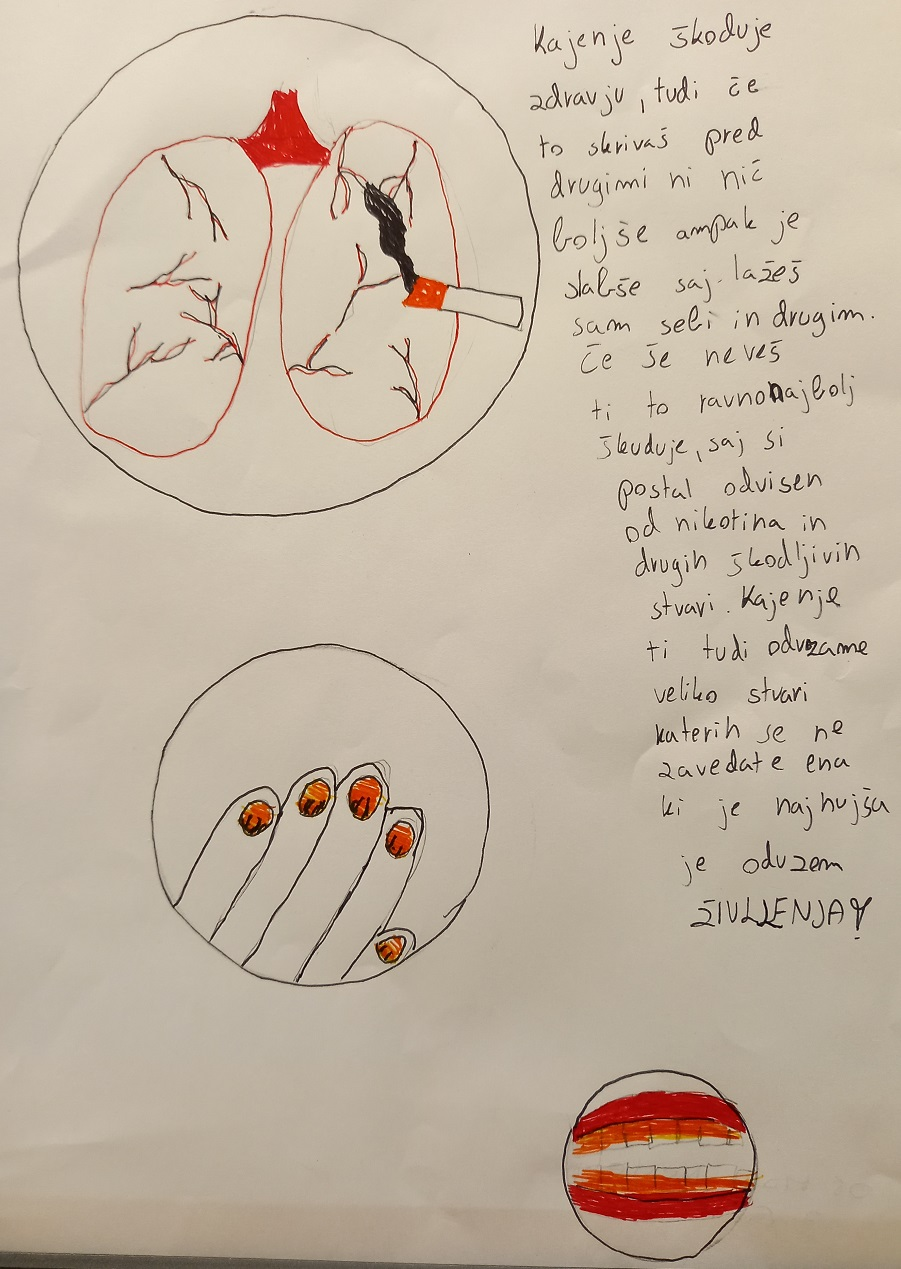 Kajenje škoduje
zdravju, tudi če
to skrivaš pred
drugimi ni nič
boljše ampak je
slabše saj lažeš
sam sebi in drugim.
Če še neveš
ti to ravno najbolj
škuduje, saj si
postal odvisen
od nikotina in
drugih škodljivih
stvari. Kajenje
ti tudi odvzame
veliko stvari
katerih se ne
zavedate ena
ki je najhujša
je odvzem
ŽIVLJENJA!